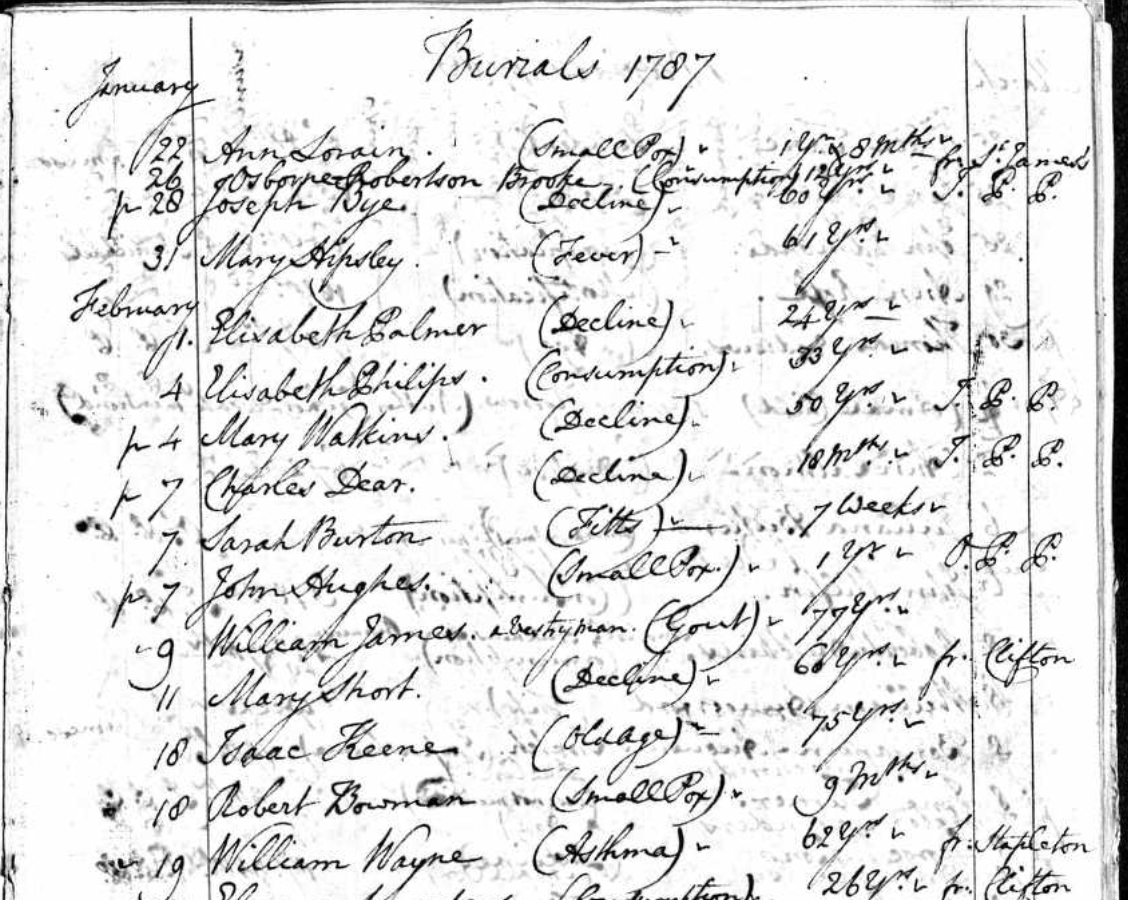 Burials 1787
January
22 Ann Lorain. (Small Pox) 1 Yr. & 8 Mths fr. St. James's
26 Osborne Robertson Brooke. (Consumption) 12 Yrs
p 28 Joseph Bye. (Decline) 60 Yrs T. P. P.
31 Mary Hipsley. (Fever) 61 Yrs
February
1. Elisabeth Palmer (Decline) 24 Yrs
4 Elisabeth Philips. (Consumption) 33 Yrs
p 4 Mary Watkins. (Decline) 50 Yrs T. P. P.
p 7 Charles Dear. (Decline) 18 Mths T. P. P.
7 Sarah Burton (Fitts) 7 Weeks
p 7 John Hughes. (Small Pox.) 1 Yr. O. P. P.
9 William James. a Vestryman. (Gout) 77 Yrs.
11 Mary Short. (Decline) 60 Yrs. fr. Clifton
18 Isaac Keene (Old age) 75 Yrs.
18 Robert Bowman (Small Pox) 9 Mths
19 William Wayne (Asthma) 62 Yrs fr. Stapleton
(Consumption) 26 Yrs. fr. Clifton